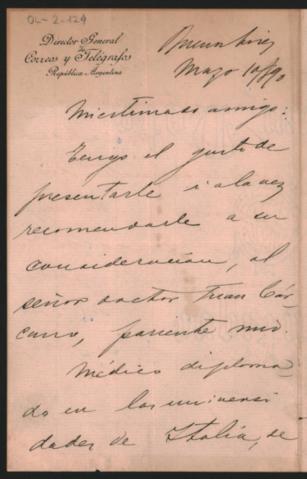 OL-2-129
Director General
de
Correos y Telégrafos
República Argentina
Buenos Aires
Mayo 10/90
Mi estimado amigo:
Tengo el gusto de
presentarle i a la vez
recomendarle a su
consideracion, al
señor doctor Juan Cár-
cano, pariente mio.
Médico diploma
do en las universi
dades de Italia, se